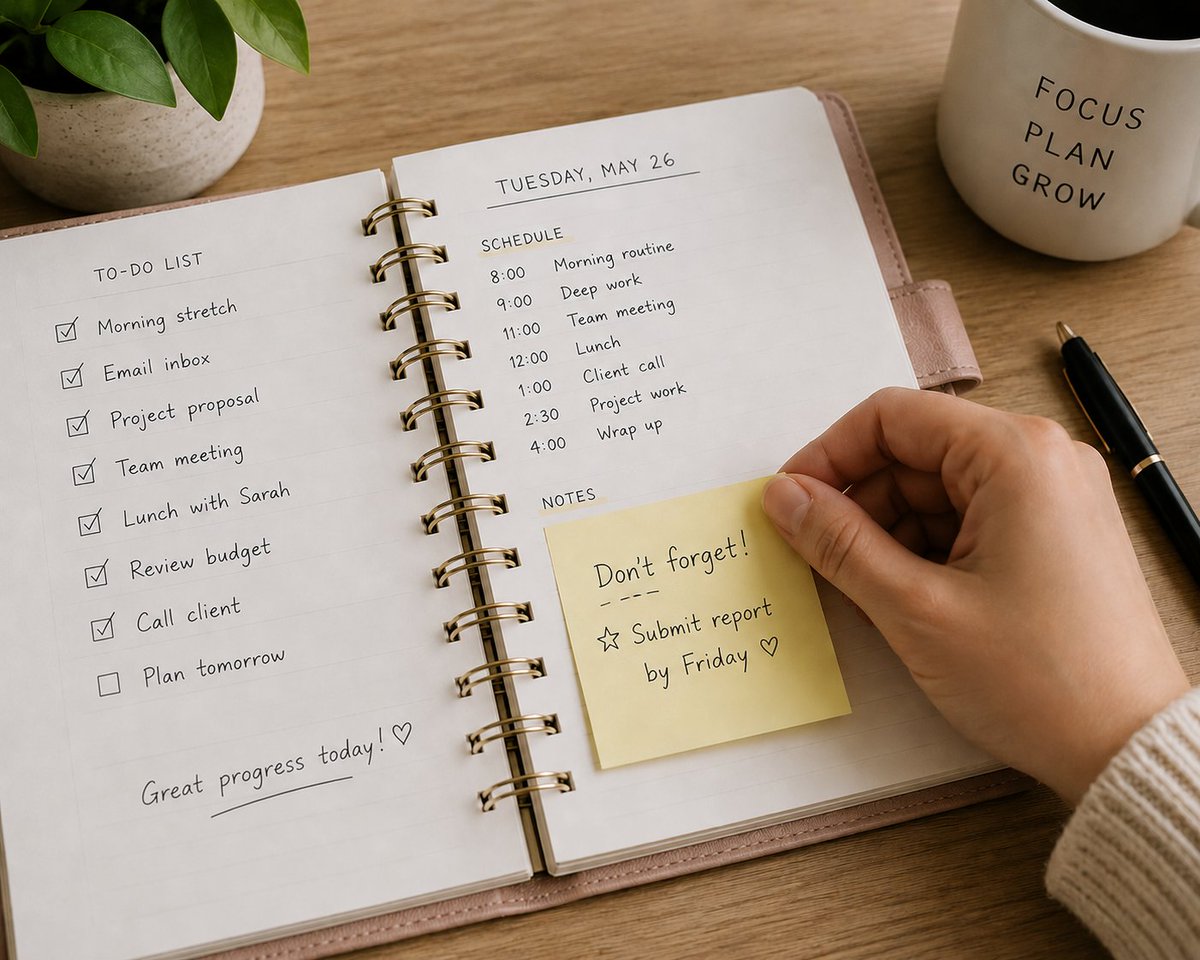 TO-DO LIST
Morning stretch
Email inbox
Project proposal
Team meeting
Lunch with Sarah
Review budget
Call client
Plan tomorrow
Great progress today!
TUESDAY, MAY 26
SCHEDULE
8:00 Morning routine
9:00 Deep work
11:00 Team meeting
12:00 Lunch
1:00 Client call
2:30 Project work
4:00 Wrap up
NOTES
Don't forget!
Submit report
by Friday
FOCUS
PLAN
GROW